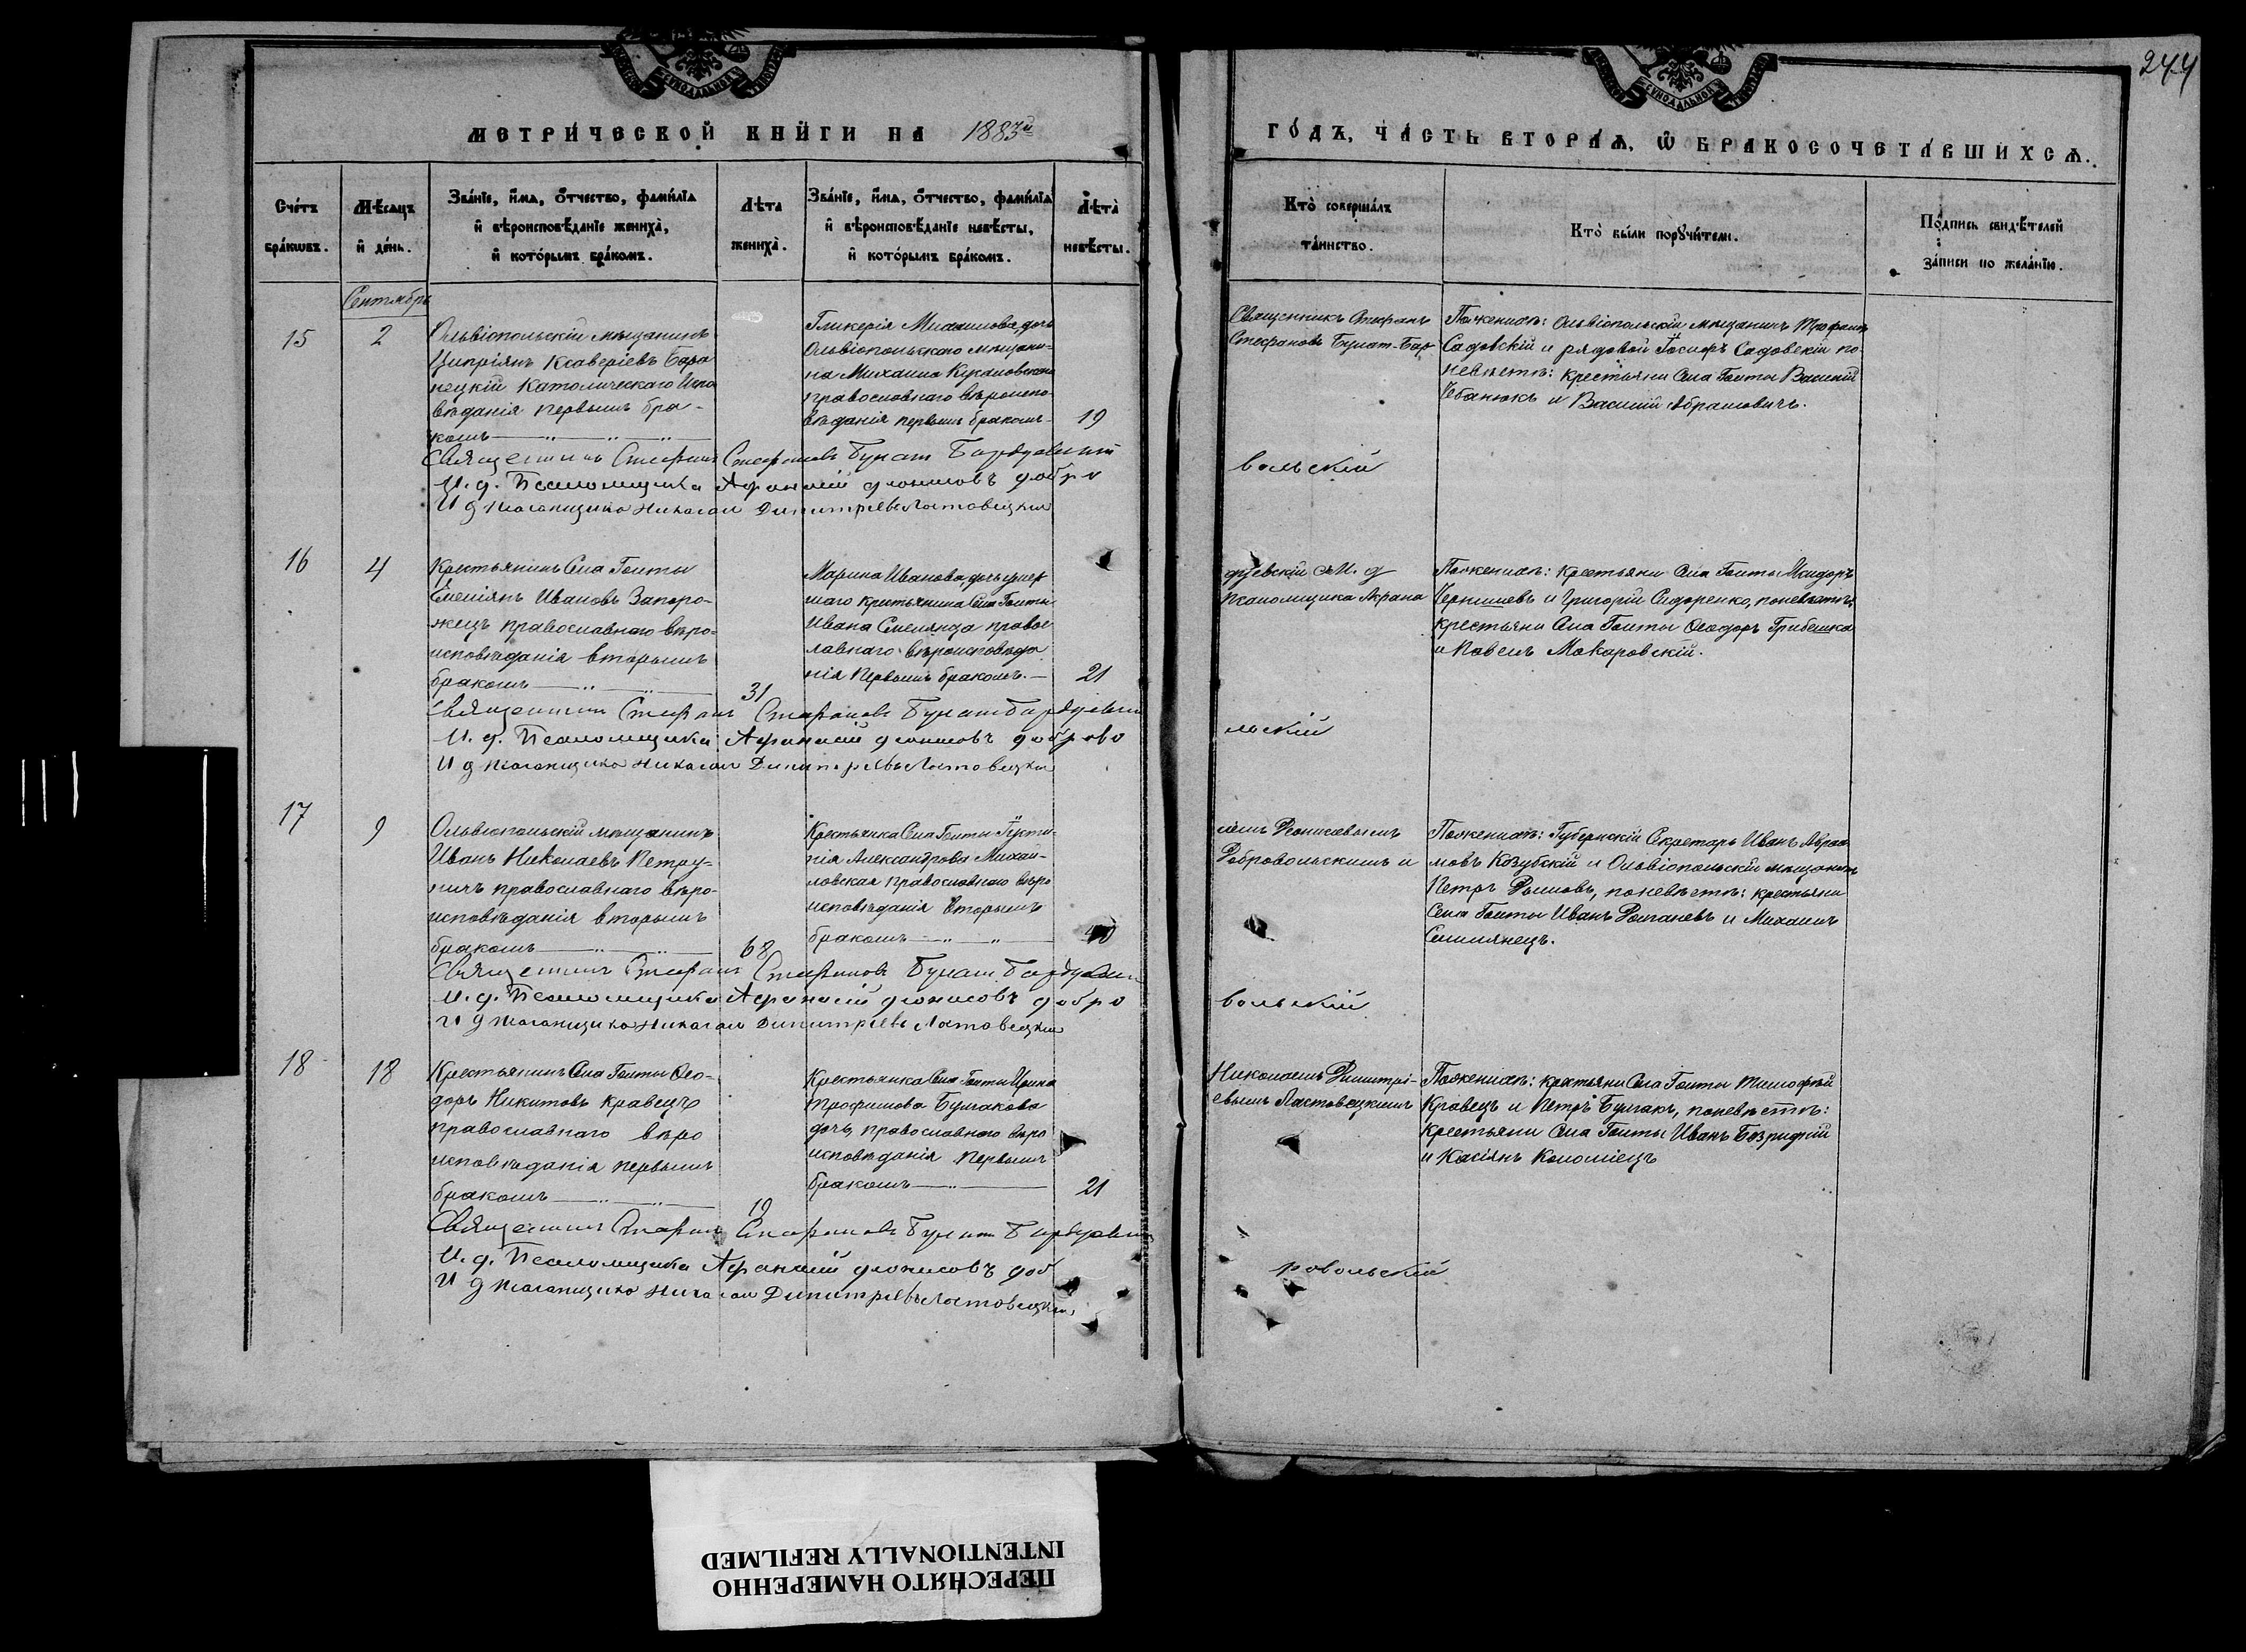 244
МЕТРИ́ЧЕСКОЙ КНИ́ГИ НА 1883й
ГО́ДЪ, ЧА́СТЬ ВТОРА́Ѧ, Ѿ БРАКОСОЧЕТА́ВШИХСѦ.
Сче́тъ бра́кѡвъ.
Мѣ́сѧцъ и҆ де́нь.
Зва́нїе, и҆́мѧ, ѻ҆́тчество, фами́лїѧ
и҆ вѣроисповѣ́данїе жениха̀,
и҆ кото́рымъ бра́комъ.
Лѣ́та жениха̀.
Зва́нїе, и҆́мѧ, ѻ҆́тчество, фами́лїѧ
и҆ вѣроисповѣ́данїе невѣ́сты,
и҆ кото́рымъ бра́комъ.
Лѣ́та невѣ́сты.
Кто̀ соверша́лъ
та́инство.
Кто̀ бы́ли порꙋчи́тели.
По́дпись свидѣ́телей
за́писи по жела́нїю.
Сентябрь
15
2
Ольвіопольскій мѣщанинъ
Ципріянъ Ксаверіевъ Бара
нецкій Католическаго Испо
вѣданія первымъ бра-
комъ
Гликерія Михаилова, дочь
Ольвіопольскаго мѣщани-
на Михаила
православнаго вѣроиспо-
вѣданія первымъ бракомъ
19
Священникъ Стефанъ
Стефановъ Булат-Бар
Пожениха: Ольвіопольскій мѣщанинъ Трофимъ
Садовскій и рядовой Іосифъ Садовскій по
невѣстѣ: крестьяни Села Голты Василій
Чебанюкъ и Василій Абрамовичъ.
Священникъ Стефанъ Стефановъ Булат Бардуевскій
И. д. Псаломщика Афанасій Діонисовъ Добро
вольскій
И д Псаломщика Николай Димитріевъ Ластовецкій
16
4
Крестьянинъ Села Голты
Емеліянъ Ивановъ Запоро-
жецъ православнаго вѣро-
исповѣданія вторымъ
бракомъ
31
Марина Иванова, дочь умер
шаго крестьянина Села Голты
Ивана Смелянца правос
лавнаго вѣроисповѣда
нія Первымъ бракомъ.
21
дуевскій с И. д
Псаломщика Афана
Пожениха: крестьяни Села Голты
и Григорій Сидоренко, поневѣстѣ:
крестьяни Села Голты Ѳеодоръ Грибешка
и Павелъ Макаровскій.
Священникъ Стефанъ Стефановъ Булат Бардуевскій
И. д. Псаломщика Афанасій Діонисовъ Доброво
льскій
И д Псаломщика Николай Димитріевъ Ластовецкій
17
9
Ольвіопольскій мѣщанинъ
Иванъ Николаевъ Петру-
ничъ православнаго вѣро-
исповѣданія вторымъ
бракомъ
68
Крестьянка Села Голты Іусти-
нія Александрова Михай-
ловская православнаго вѣро
исповѣданія Вторымъ
бракомъ
40
сіемъ Діонисовымъ
Добровольскимъ и
Пожениха: Губернскій Секретарь Иванъ Авраа
мовъ Козубскій и Ольвіопольскій мѣщанинъ
Петръ, поневѣстѣ: крестьяни
Села Голты Иванъ и Михаилъ
Смилянецъ.
Священникъ Стефанъ Стефановъ Булат Бардуевскій
И. д. Псаломщика Афанасій Діонисовъ Добро
вольскій
И д Псаломщика Николай Димитріевъ Ластовецкій
18
18
Крестьянинъ Села Голты Ѳео-
доръ Никитовъ Кравецъ
православнаго вѣро
исповѣданія первымъ
бракомъ
19
Крестьянка Села Голты Ирина
Трофимова Булгакова
дочь, православнаго вѣро
исповѣданія Первымъ
бракомъ
21
Николаемъ Димитрі-
евымъ Ластовецкимъ
Пожениха: крестьяни Села Голты Тимофѣй
Кравецъ и Петръ Булгакъ, поневѣстѣ:
Крестьяни Села Голты Иванъ
и Касіянъ Коломіецъ
Священникъ Стефанъ Стефановъ Булат Бардуевскій
И. д. Псаломщика Афанасій Діонисовъ Доб
ровольскій
И д Псаломщика Николай Димитріевъ Ластовецкій
ПЕРЕСНЯТО НАМЕРЕННО
INTENTIONALLY REFILMED